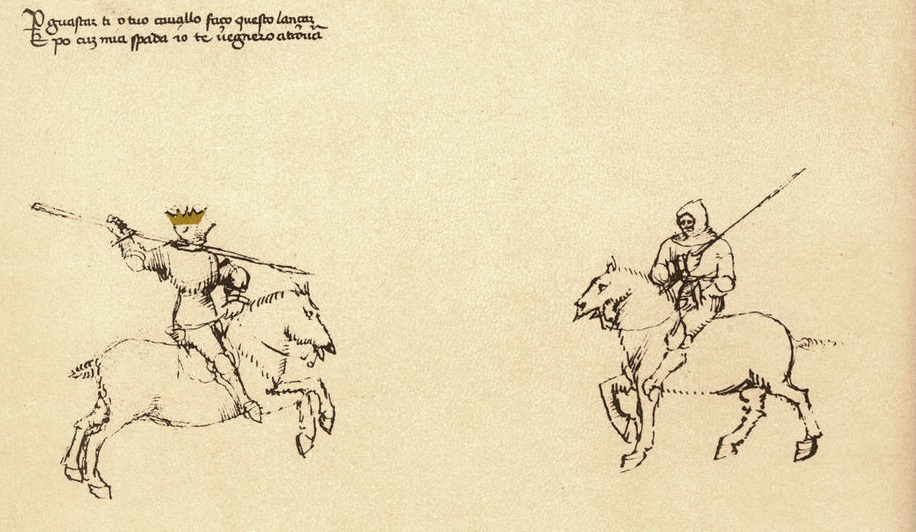 P guastar ti o tuo cavallo faço questo lançar
E po cuz mia spada io te vegnero a trovar